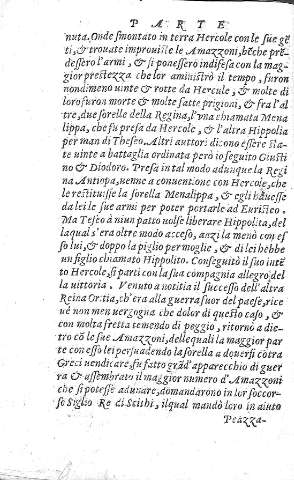 PARTE
nuta. Onde smontato in terra Hercole con le sue gē
ti, & trouate improuiste le Amazzoni, bēche prē-
dessero l'armi, & si ponessero in difesa con la mag-
gior prestezza che lor aministrò il tempo, furon
nondimeno uinte & rotte da Hercule, & molte di
loro furon morte & molte fatte prigioni, & fra l'al
tre, due sorelle della Regina, l'una chiamata Mena
lippa, che fu presa da Hercole, & l'altra Hippolia
per man di Theseo. Altri auttori dicono essere sta-
te uinte a battaglia ordinata però io seguito Giusti
no & Diodoro. Presa in tal modo adunque la Regi
na Antiopa, uenne a conuentione con Hercole, che
le restituisse la sorella Menalippa, & egli hauesse
da lei le sue armi per poter portarle ad Euristeo.
Ma Teseo à niun patto uolse liberare Hippolita, del
la qual s'era oltre modo acceso, anzi la menò con es
so lui, & doppo la piglio per moglie, & di lei hebbe
un figlio chiamato Hippolito. Conseguitò il suo intē
to Hercole, si parti con la sua compagnia allegro del
la uittoria. Venuto a notitia il successo dell'altra
Reina Oritia, ch'era alla guerra fuor del paese, rice
uè non men uergogna che dolor di questo caso, &
con molta fretta temendo di peggio, ritornò a die-
tro cō le sue Amazzoni, delle quali la maggior par
te con essò lei persuadendo la sorella a douersi cōtra
Greci uendicare, su fatto grād'apparecchio di guer
ra & assembrato il maggior numero d'Amazzoni
che si potesse adunare, domandarono in lor soccor-
so Sigilo Re di Scithi, il qual mandò loro in aiuto
Peazza-